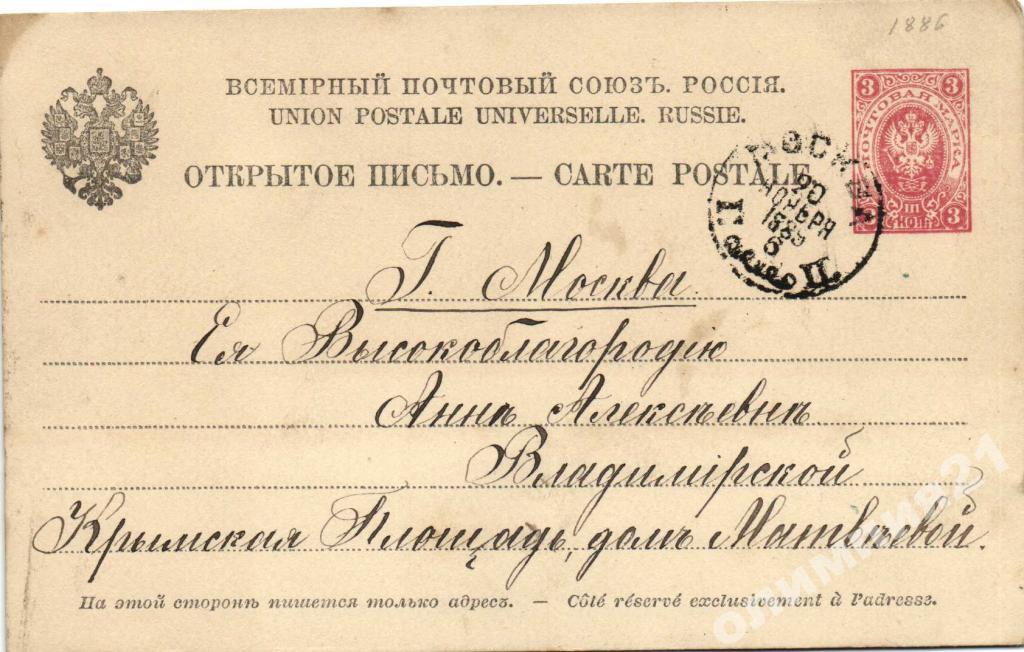 1886
ВСЕМІРНЫЙ ПОЧТОВЫЙ СОЮЗЪ. РОССІЯ.
UNION POSTALE UNIVERSELLE. RUSSIE.
ОТКРЫТОЕ ПИСЬМО. — CARTE POSTALE.
3 3
ПОЧТОВАЯ МАРКА
III
КОП.
3
МОСКВА
20
НОЯБРЯ
1889
Г. Москва
Ея Высокоблагородію
Аннѣ Алексѣевнѣ
Владимірской
Крымская Площадь, домъ Матвѣевой.
На этой сторонѣ пишется только адресъ. — Côté réservé exclusivement à l'adresse.
олимпия21